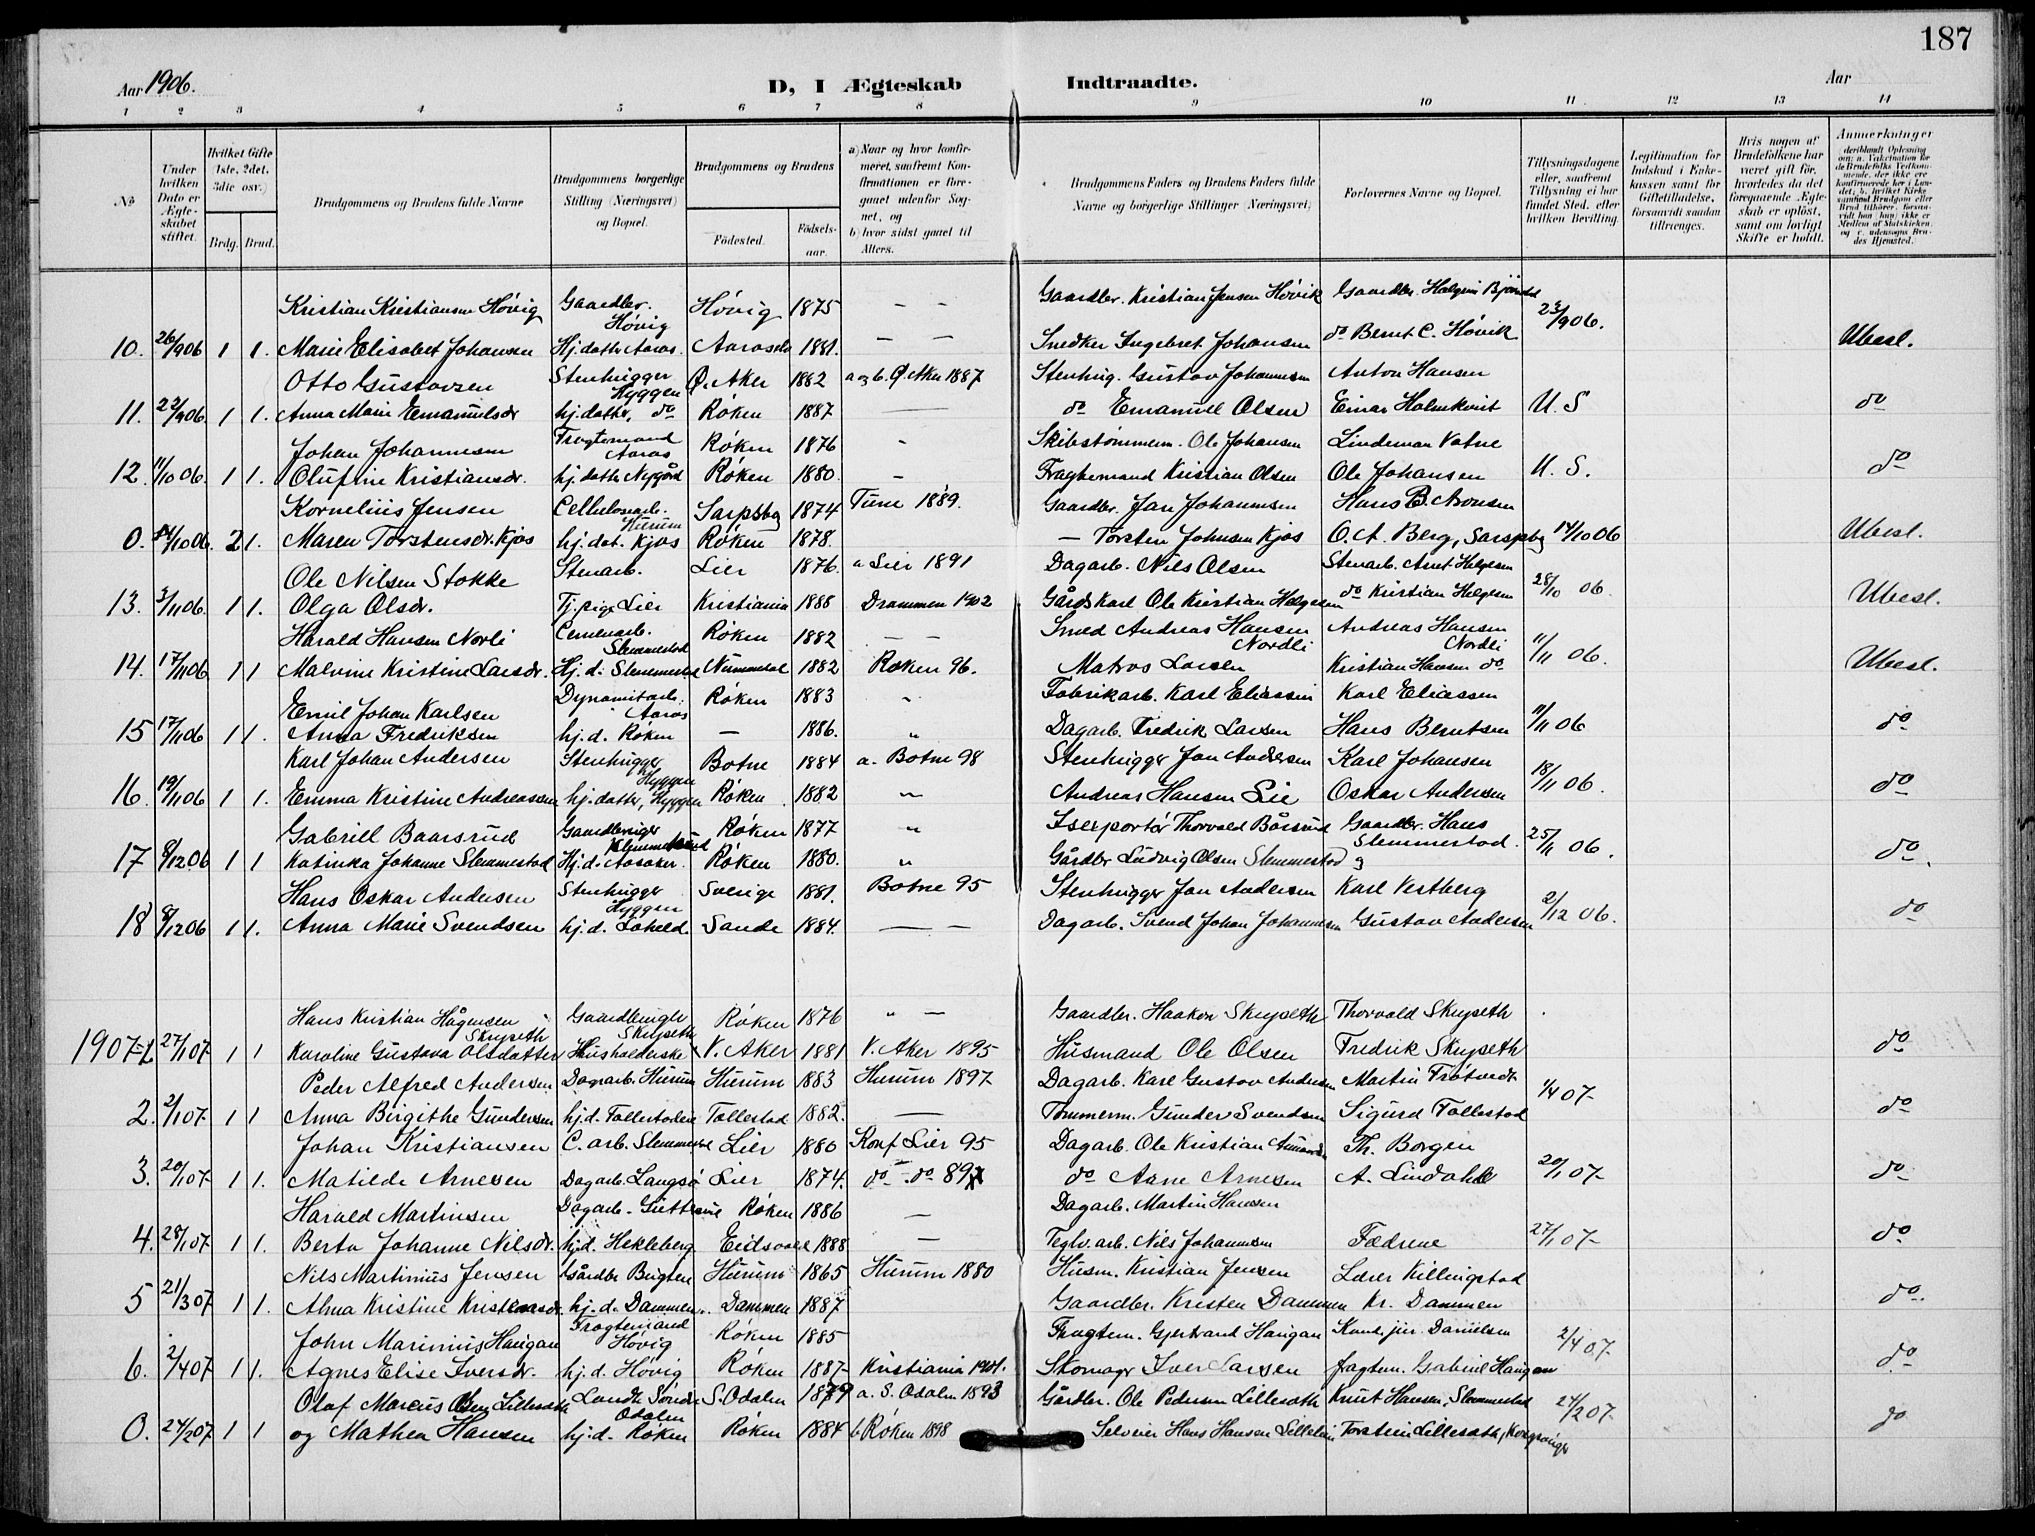 187
Aar 1906.
D, I Ægteskab Indtraadte.
Aar
1 2 3 4 5 6 7 8 9 10 11 12 13 14
№
Under hvilken Dato er Ægteskabet stiftet.
Hvilket Gifte (1ste, 2det, 3die osv.)
Brdg. Brud.
Brudgommens og Brudens fulde Navne
Brudgommens borgerlige Stilling (Næringsvei) og Bopæl.
Brudgommens og Brudens
Födested. Födsels-aar.
a) Naar og hvor konfirmeret, saafremt Konfirmationen er foregaaet udenfor Sognet, og
b) hvor sidst gaaet til Alters.
Brudgommens Faders og Brudens Faders fulde Navne og borgerlige Stillinger (Næringsvei)
Forlovernes Navne og Bopæl.
Tillysningsdagene eller, saafremt Tillysning ei har fundet Sted, efter hvilken Bevilling.
Legitimation for Indskud i Enkekassen samt for Giftetilladelse, forsaavidt saadan tiltrænges.
Hvis nogen af Brudefolkene har været gift för, hvorledes da det foregaaende Ægteskab er oplöst, samt om lovligt Skifte er holdt.
Anmerkninger
Kristian Kristiansen Hövig Gaardbr. Hövig Hövig 1875 — — Gaardbr. Kristian Jensen Hövik Gaardbr. Halgrim Björnstad 23/9 06.
10. 26/9 06 1 1. Marie Elisabet Johansen Hj. dath. Aaros. Aarosel 1881. — — Snedker Ingebret Johansen do Bernt C. Hövik Ubesl.
Otto Gustavsen Stenhugger Hyggen Ø. Aker 1882 a og b. Ø. Aker 1887 Stenhug. Gustav Johannesen Anton Hansen
11. 22/9 06. 1 1. Anna Marie Emanuelsdr hj. dather, do Röken 1887 — do Emanuel Olsen Einar Holmkvist U. S do
Johan Johannesen Fragtemand Aaros Röken 1876 - Skibstömmerm. Ole Johansen Lindeman Vatne
12. 11/10 06. 1 1. Olufine Kristiansdr. hj. dath. Nygård Röken 1880. — Fragtemand Kristian Olsen Ole Johansen U. S. do
Kornelius Jensen Cellulosearb. Hurum Sarpsbg 1874 Tune 1889. Gaardbr. Jan Johannesen Hans B. Aronsen
0. 14/10 06. 2 1. Maren Torstensdr. Kjos hj. dat. Kjos Röken 1878. — Torsten Johnsen Kjos O. A. Berg, Sarpsbg 14/10 06 Ubesl.
Ole Nilsen Stokke Stenarb. Lier 1876. a Lier 1891 Dagarb. Nils Olsen Stenarb. Anet Helgesen 28/10 06.
13. 3/11 06. 1 1. Olga Olsdr. Tj. pige Lier Kristiania 1888 Drammen 1902 Gårdskarl Ole Kristian Helgesen do Kristian Helgesen Ubesl.
Harald Hansen Norli Cemenarb. Slemmestad Röken 1882 — — Smed Andreas Hansen Nordli Andreas Hansen Nordli 11/11 06.
14. 17/11 06 1 1 Malvine Kristine Larsdr. Hj. d. Slemmestad Nummedal 1882 Röken 96. Matros Larsen Kristian Hansen do Ubesl.
Emil Johan Karlsen Dynamitarb. Aaros Röken 1883 „ Fabrikarb. Karl Eliassen Karl Eliassen
15 17/11 06 1 1. Anna Fredriksen hj. d. Röken — 1886. „ Dagarb. Fredrik Larsen Hans Berntsen 11/11 06 do
Karl Johan Andersen Stenhugger Hyggen Botne 1884 a. Botne 98 Stenhugger Jan Andersen Karl Johansen 18/11 06.
16. 19/11 06 1 1. Emma Kristine Andreassen hj. dather, Hyggen Röken 1882 „ Andreas Hansen Lie Oskar Andersen do
Gabriell Baarsrud Gaardbruger Slemmestad Röken 1877 „ Iseeportör Thorvald Bårsrud Gaardbr. Hans Slemmestad 25/11 06.
17 8/12 06 1 1 Katinka Johanne Slemmestad Hj. d. Aasaker. Röken 1880. „ Gårdbr Ludvig Olsen Slemmestad og do.
Hans Oskar Andersen Stenhugger Hyggen Sverige 1881. Botne 95 Stenhugger Jan Andersen Karl Vestberg 2/12 06.
18 8/12 06 1 1. Anna Marie Svendsen hj. d. Loheld Sande 1884. — — Dagarb. Svend Johan Johannesen Gustav Andersen do
Hans Kristian Hågensen Skryseth Gaardbruger Skryseth Röken 1876 „ — Gaardbr. Haakon Skryseth Thorvald Skryseth
1907-1. 27/1 07 1 1 Karoline Gustava Olsdatter Husholderske V. Aker 1881 V. Aker 1895 Husmand Ole Olsen Fredrik Skryseth do
Peder Alfred Andersen Dagarb. Hurum Hurum 1883 Hurum 1897 Dagarb. Karl Gustav Andersen Martin Tråtvedt 1/4 07-
2. 2/1 07- 1 1 Anna Birgithe Gundersen hj. d. Tollestadeie Tollestad 1882. — Tömmerm. Gunder Svendsen Sigurd Tollestad do
Johan Kristiansen C. arb. Slemmestad Lier 1880 Konf Lier 95 Dagarb. Ole Kristian Th. Borgen
3. 20/1 07- 1 1. Matilde Arnesen Dagarb. Langsö Lier 1874. do — do 89 do Aane Arnesen A. Lindahl 20/1 07- do
Harald Martinsen Dagarb. Röken 1886 — Dagarb. Martin Hansen
4. 28/1 07. 1 1. Berta Johanne Nilsdr. hj. d. Hekleberg Eidsvold 1888 — Teglv. arb. Nils Johannesen Fædrene 27/1 07- do
Nils Martinius Jensen Gårdbr Bugten Hurum 1865 Hurum 1880 Husm. Kristian Jensen Lærer Killingstad
5 21/3 07 1 1. Alma Kristine Kristensdr. hj. d. Dammen. Dammen 1887 Gaardbr. Kristen Dammen Kr. Dammen do.
John Marinius Haugan Fragtemand Hövig Röken 1885 Fragtem. Gjertrand Haugan Kand. jur. Danielsen 2/4 07.
6. 2/4 07 1 1. Agnes Elise Iversdr. hj. d. Hövig Röken 1887- Kristiania 1901. Skomagr Iver Larsen fragtem. Gabriel Haugan do
Olaf Marcus Olsen Lilleseth Landh. Söndre Odalen S. Odalen 1879 a. S. Odalen 1893 Gårdbr. Ole Pedersen Lilleseth Knut Hansen, Slemmestad 24/2 07-
0. 24/2 07 1 1 og Mathea Hansen hj. d. Röken Röken 1884 b Röken 1898 Selveier Hans Hansen Torstein Lilleseth, Kongsvinger do